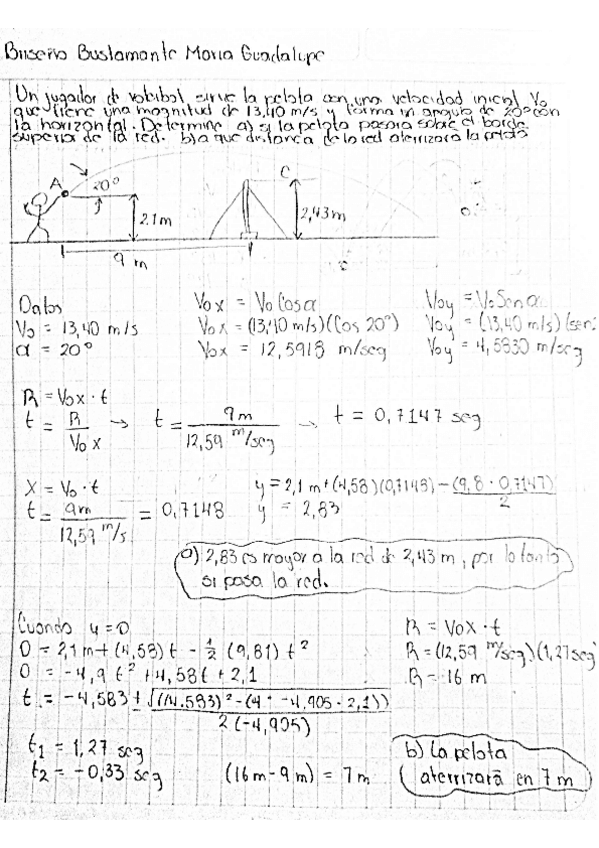 Briseño Bustamante Maria Guadalupe
Un jugador de voleibol sirve la pelota con una velocidad inicial Vo
que tiene una magnitud de 13,40 m/s y forma un angulo de 20° con
la horizontal. Determine a) si la pelota pasara sobre el borde
superior de la red. b) a que distancia de la red aterrizara la pelota
A 20° C
2.1 m 2,43 m
9 m
Datos
Vo = 13,40 m/s
α = 20°
Vox = Vo Cos α
Vox = (13,40 m/s)(Cos 20°)
Vox = 12,5918 m/seg
Voy = Vo Sen α
Voy = (13,40 m/s)(sen
Voy = 4,5830 m/seg
R = Vox · t
t = R / Vox → t = 9 m / 12,59 m/seg → t = 0,7147 seg
X = Vo · t
t = 9m / 12,59 m/s = 0,7148
y = 2,1 m + (4,58)(0,7148) - (9,8 · 0,7147) / 2
y = 2,83
a) 2,83 es mayor a la red de 2,43 m, por lo tanto
si pasa la red.
Cuando y = 0
0 = 2,1 m + (4,58) t - 1/2 (9,81) t²
0 = -4,9 t² + 4,58 t + 2,1
t = -4,583 ± √((4.583)² - (4 · -4,905 · 2,1)) / 2(-4,905)
t₁ = 1,27 seg
t₂ = -0,33 seg
(16 m - 9 m) = 7 m
R = Vox · t
R = (12,59 m/seg)(1,27 seg
R = 16 m
b) La pelota
aterrizará en 7 m